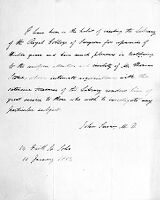 I have been in the habit of reading the Library
of the Royal College of Surgeons for upwards of
twelve years and have much pleasure in testifying
to the uniform attention and civility of Mr Thomas
Stone, whose intimate acquaintance with the
extensive treasures of the Library renders him of
great service to those who wish to investigate any
particular subject.
John Snow, M.D.
54 Frith St, Soho
11 January 185